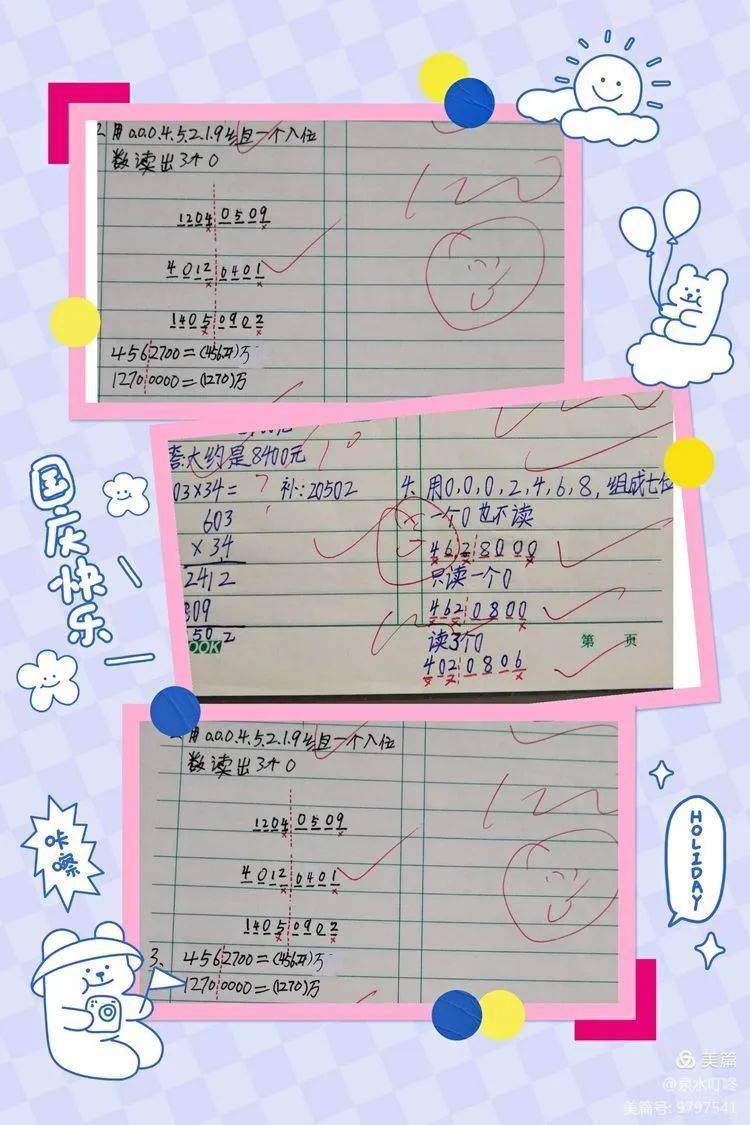 2. 用0.0.0.4.5.2.1.9组一个八位
数读出3个0
1204 0509
4012 0401
1405 0902
4562700=(456万)万
12700000=(1270)万
大约是8400元
03×34=
补:20502
603
×34
2412
09
502
OOK
4. 用0,0,0,2,4,6,8,组成七位
一个0也不读
4628000
只读一个0
4620800
读3个0
4020806
第 页
国庆快乐
用0.0.0.4.5.2.1.9组一个八位
数读出3个0
1204 0509
4012 0401
1405 0902
3、4562700=(456万)万
12700000=(1270)万
咔嚓
HOLIDAY
美篇
@泉水叮咚
美篇号: 9797541